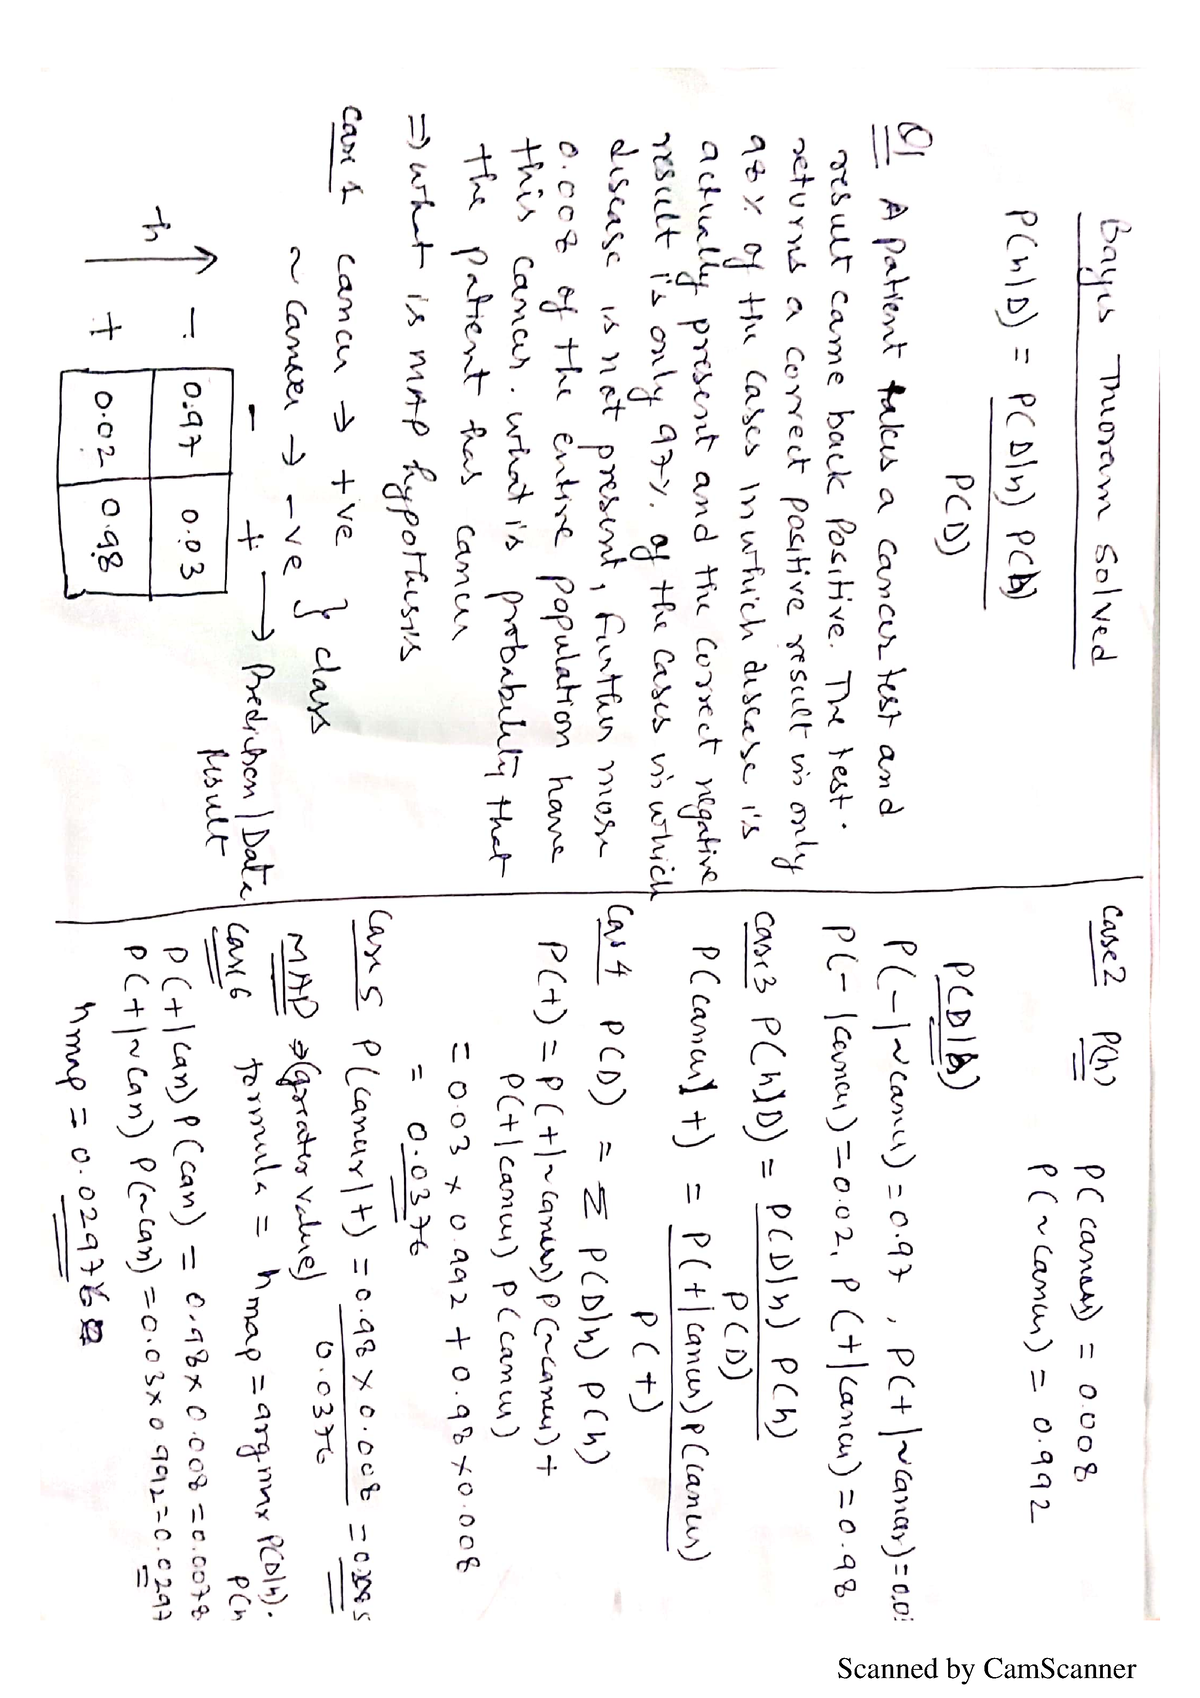 Bayes Theoram Solved
P(h|D) = P(D|h) P(h)
P(D)
Q1 A patient takes a cancer test and
result came back Positive. The test.
returns a correct positive result in only
98% of the cases in which disease is
actually present and the correct negative
result is only 97% of the cases in which
disease is not present, further more
0.008 of the entire population have
this cancer. what is probability that
the patient has cancer
=) what is MAP hypothesis
Case 1 cancer → +ve
~ cancer → -ve } class
- + → Prediction | Data
result
h
- 0.97 0.03
+ 0.02 0.98
Case 2 P(h) P(cancer) = 0.008
P(~cancer) = 0.992
P(D|h)
P(-|~cancer) = 0.97, P(+|~cancer) = 0.0
P(-|cancer) = 0.02, P(+|cancer) = 0.98
Case 3 P(h|D) = P(D|h) P(h)
P(D)
P(cancer|+) = P(+|cancer) P(cancer)
P(+)
Cas 4 P(D) = Σ P(D|h) P(h)
P(+) = P(+|~cancer) P(~cancer) +
P(+|cancer) P(cancer)
= 0.03 x 0.992 + 0.98 x 0.008
= 0.0376
Case 5 P(cancer|+) = 0.98 x 0.008 =
0.0376
MAP ⇒ (greater value)
Case 6 formula = hmap = argmax P(D|h).
P(h
P(+|can) P(can) = 0.98 x 0.008 = 0.0078
P(+|~can) P(~can) = 0.03 x 0.992 = 0.0297
hmap = 0.0297
Scanned by CamScanner